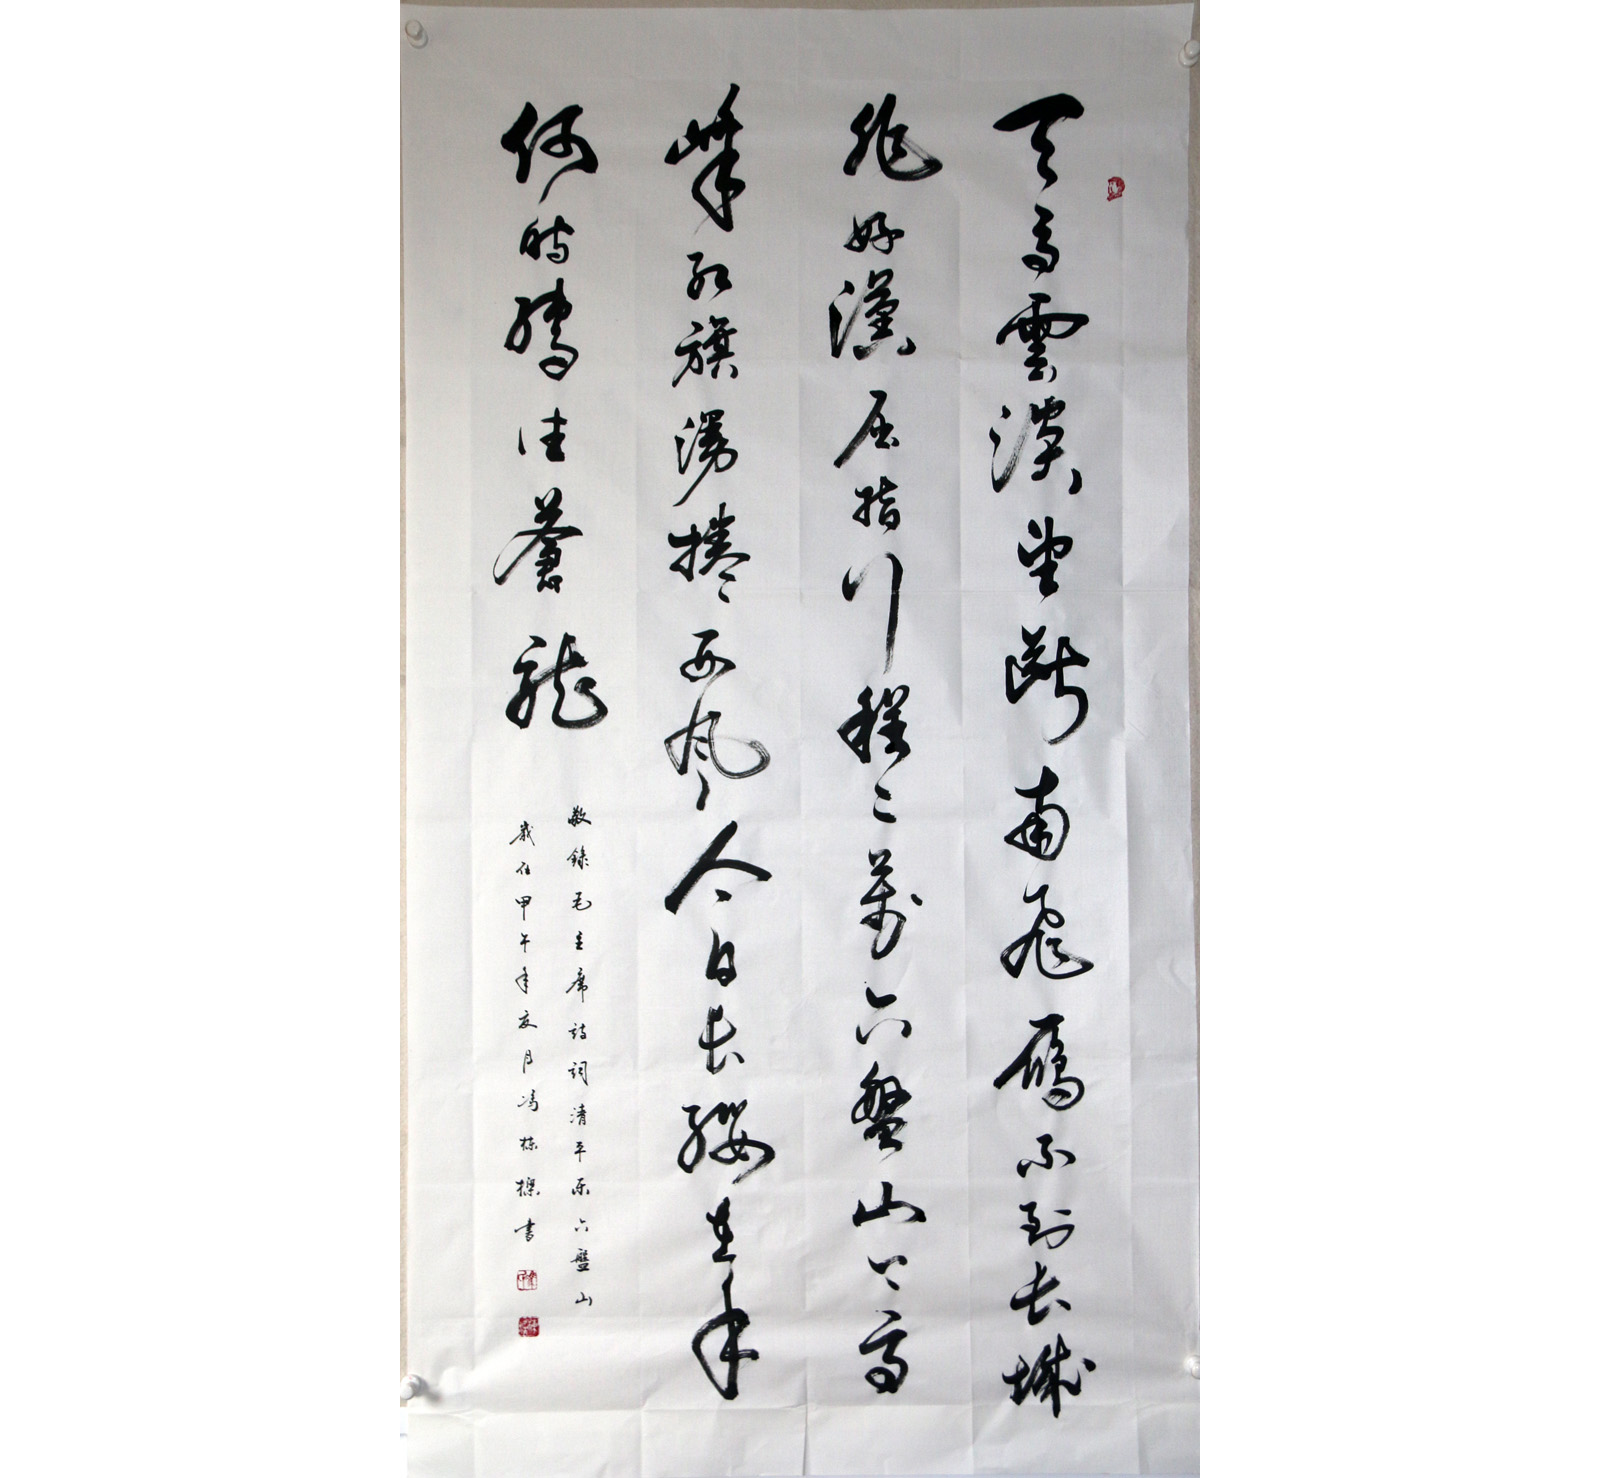 天高雲淡望斷南飛雁不到長城
非好漢屈指行程二萬六盤山上高
峰紅旗漫捲西風今日長纓在手
何時縛住蒼龍
敬錄毛主席詩詞清平樂六盤山
歲在甲午年夏月馮棟樑書